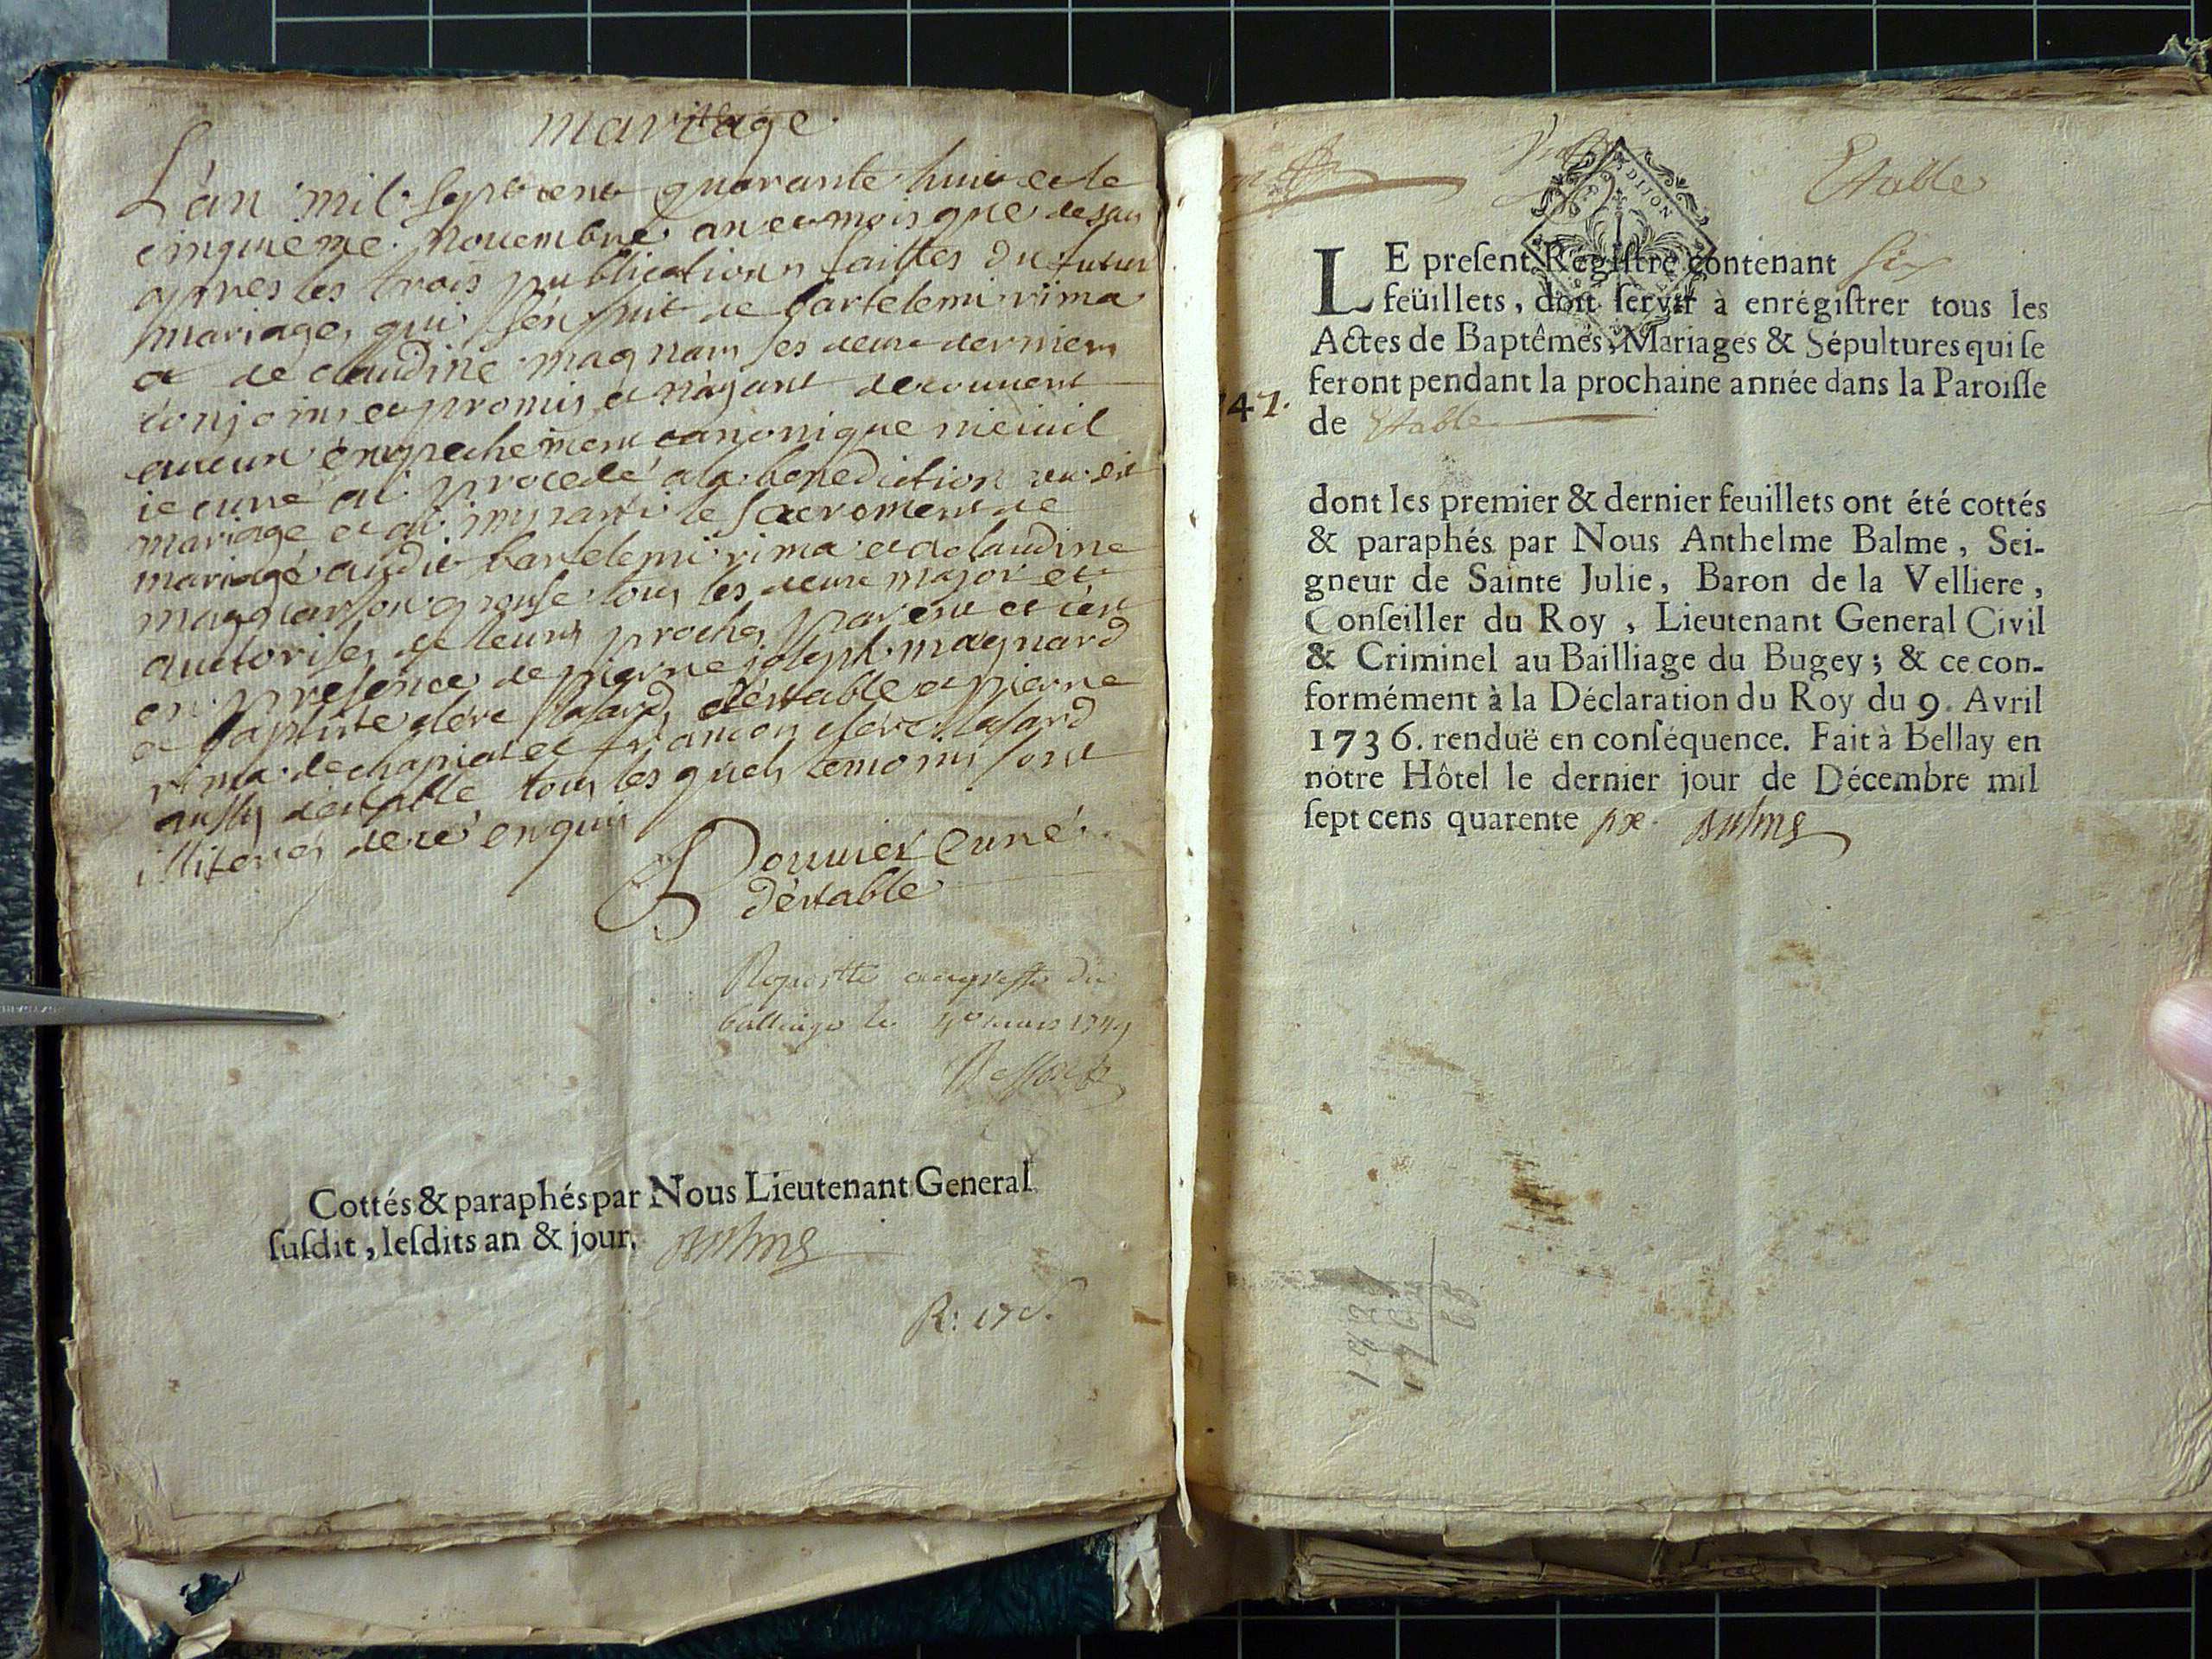 mariage
L'an mil sept cent quarante huit et le
cinquieme novembre an et mois que dessus
apres les trois publications faittes du futur
mariage qui s'en suit de bartelemi rima
et de claudine magnain ses deux derniers
conjoins et promis et n'ayant decouvert
aucun empechement canonique ni civil
je curé ai procedé a la benediction du dit
mariage et ai imparti le sacrement de
mariage audit bartelemi rima et a claudine
magnain son epouse tous les deux major et
auctorises de leurs proches parent et c'est
en presence de pierre joseph magnard
et baptiste clerc d'estable et pierre
rima de et françon clerc
aussy d'estable tous les quels temoins sont
illiterés de ce enquis
Bouvier Curé
d'estable
Raporté au greffe du
balliage le mars 1749
Cottés & paraphés par Nous Lieutenant General
ſuſdit, leſdits an & jour.
Balme
Etable
LE preſent Régiſtre contenant six
feüillets, doit ſervir à enrégiſtrer tous les
Actes de Baptêmes, Mariages & Sépultures qui ſe
feront pendant la prochaine année dans la Paroiſſe
de Etable
dont les premier & dernier feuillets ont été cottés
& paraphés par Nous Anthelme Balme, Sei-
gneur de Sainte Julie, Baron de la Velliere,
Conſeiller du Roy, Lieutenant General Civil
& Criminel au Bailliage du Bugey; & ce con-
formément à la Déclaration du Roy du 9. Avril
1736. renduë en conſéquence. Fait à Bellay en
nôtre Hôtel le dernier jour de Décembre mil
ſept cens quarente six. Balme